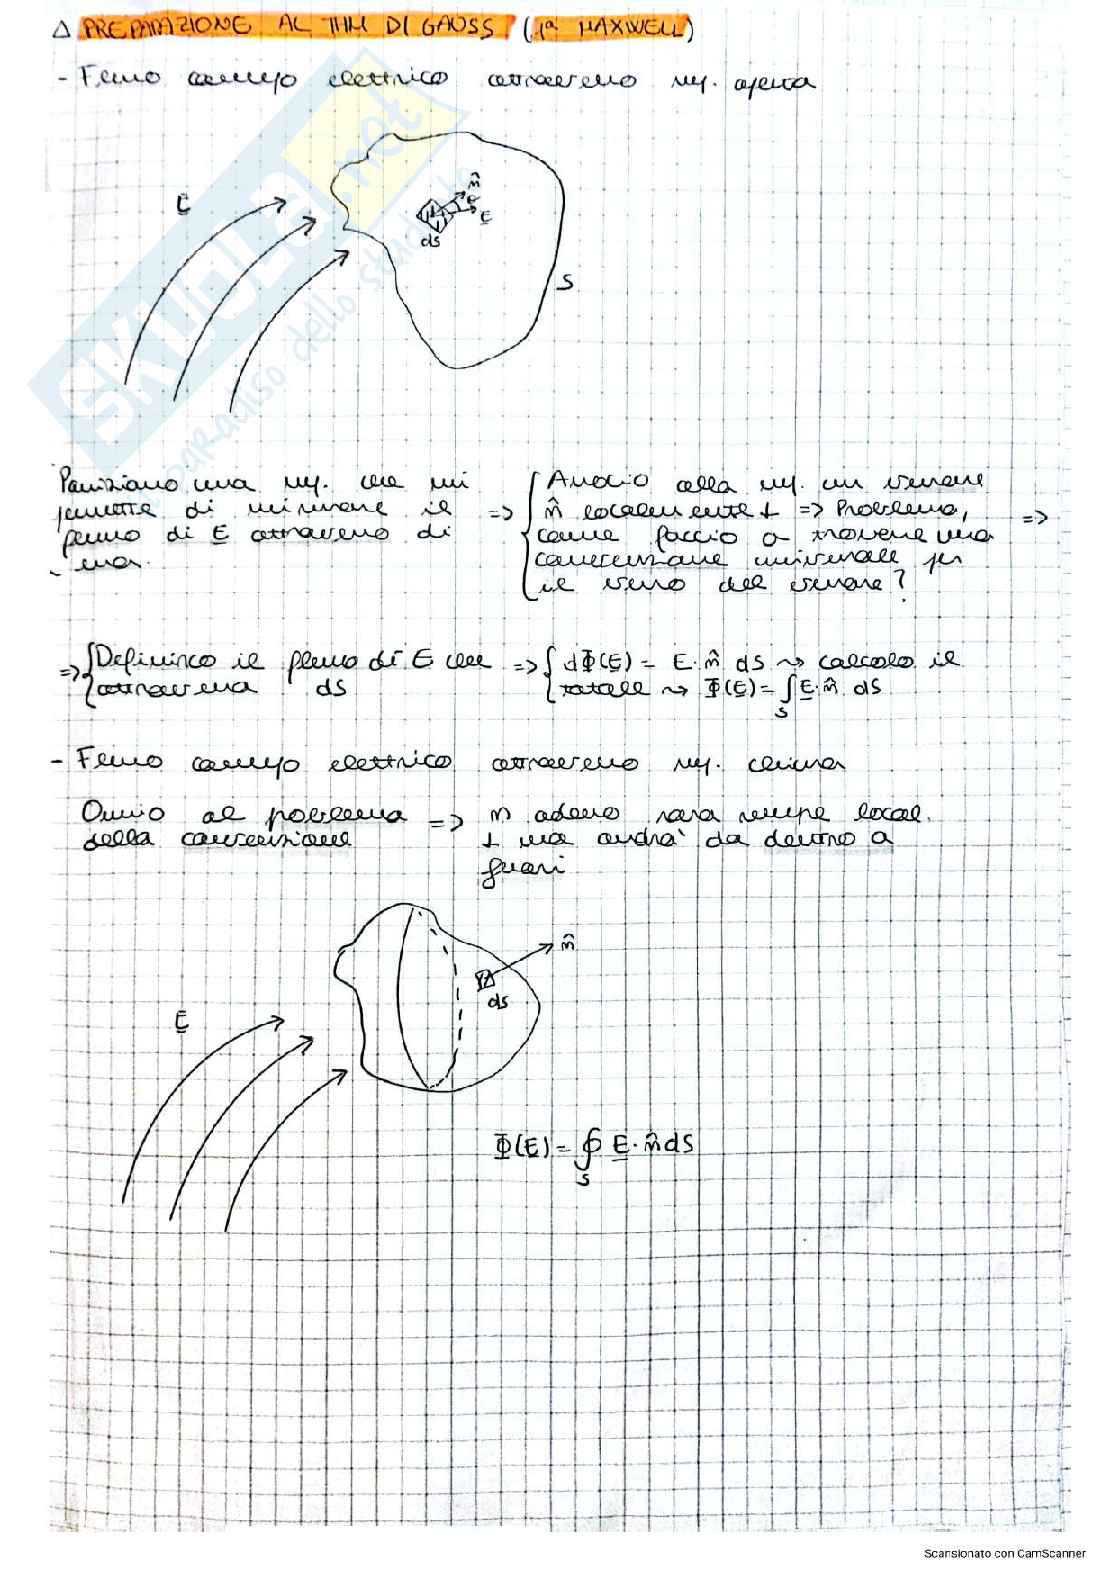 △ PREPARAZIONE AL THM DI GAUSS (1ª MAXWELL)
- Flusso campo elettrico attraverso sup. aperta
E
n̂
E
dS
S
SKUOLA.net
paradiso dello studente
una sup. che mi => { Associo alla sup. un versore
permette di misurare il n̂ localmente ⊥ => Problema, =>
flusso di E attraverso di come faccio a trovare una
essa. convenzione universale per
il verso del versore?
=> { Definisco il flusso di E che => { dΦ(E) = E·n̂ dS ⇝ calcolo il
attraversa dS totale ⇝ Φ(E) = ∫ E·n̂ dS
S
- Flusso campo elettrico attraverso sup. chiusa
Ovvio al problema => n adesso sarà sempre local.
della convenzione ⊥ ma andrà da dentro a
fuori
n̂
dS
E
Φ(E) = ∮ E·n̂ dS
S
Scansionato con CamScanner